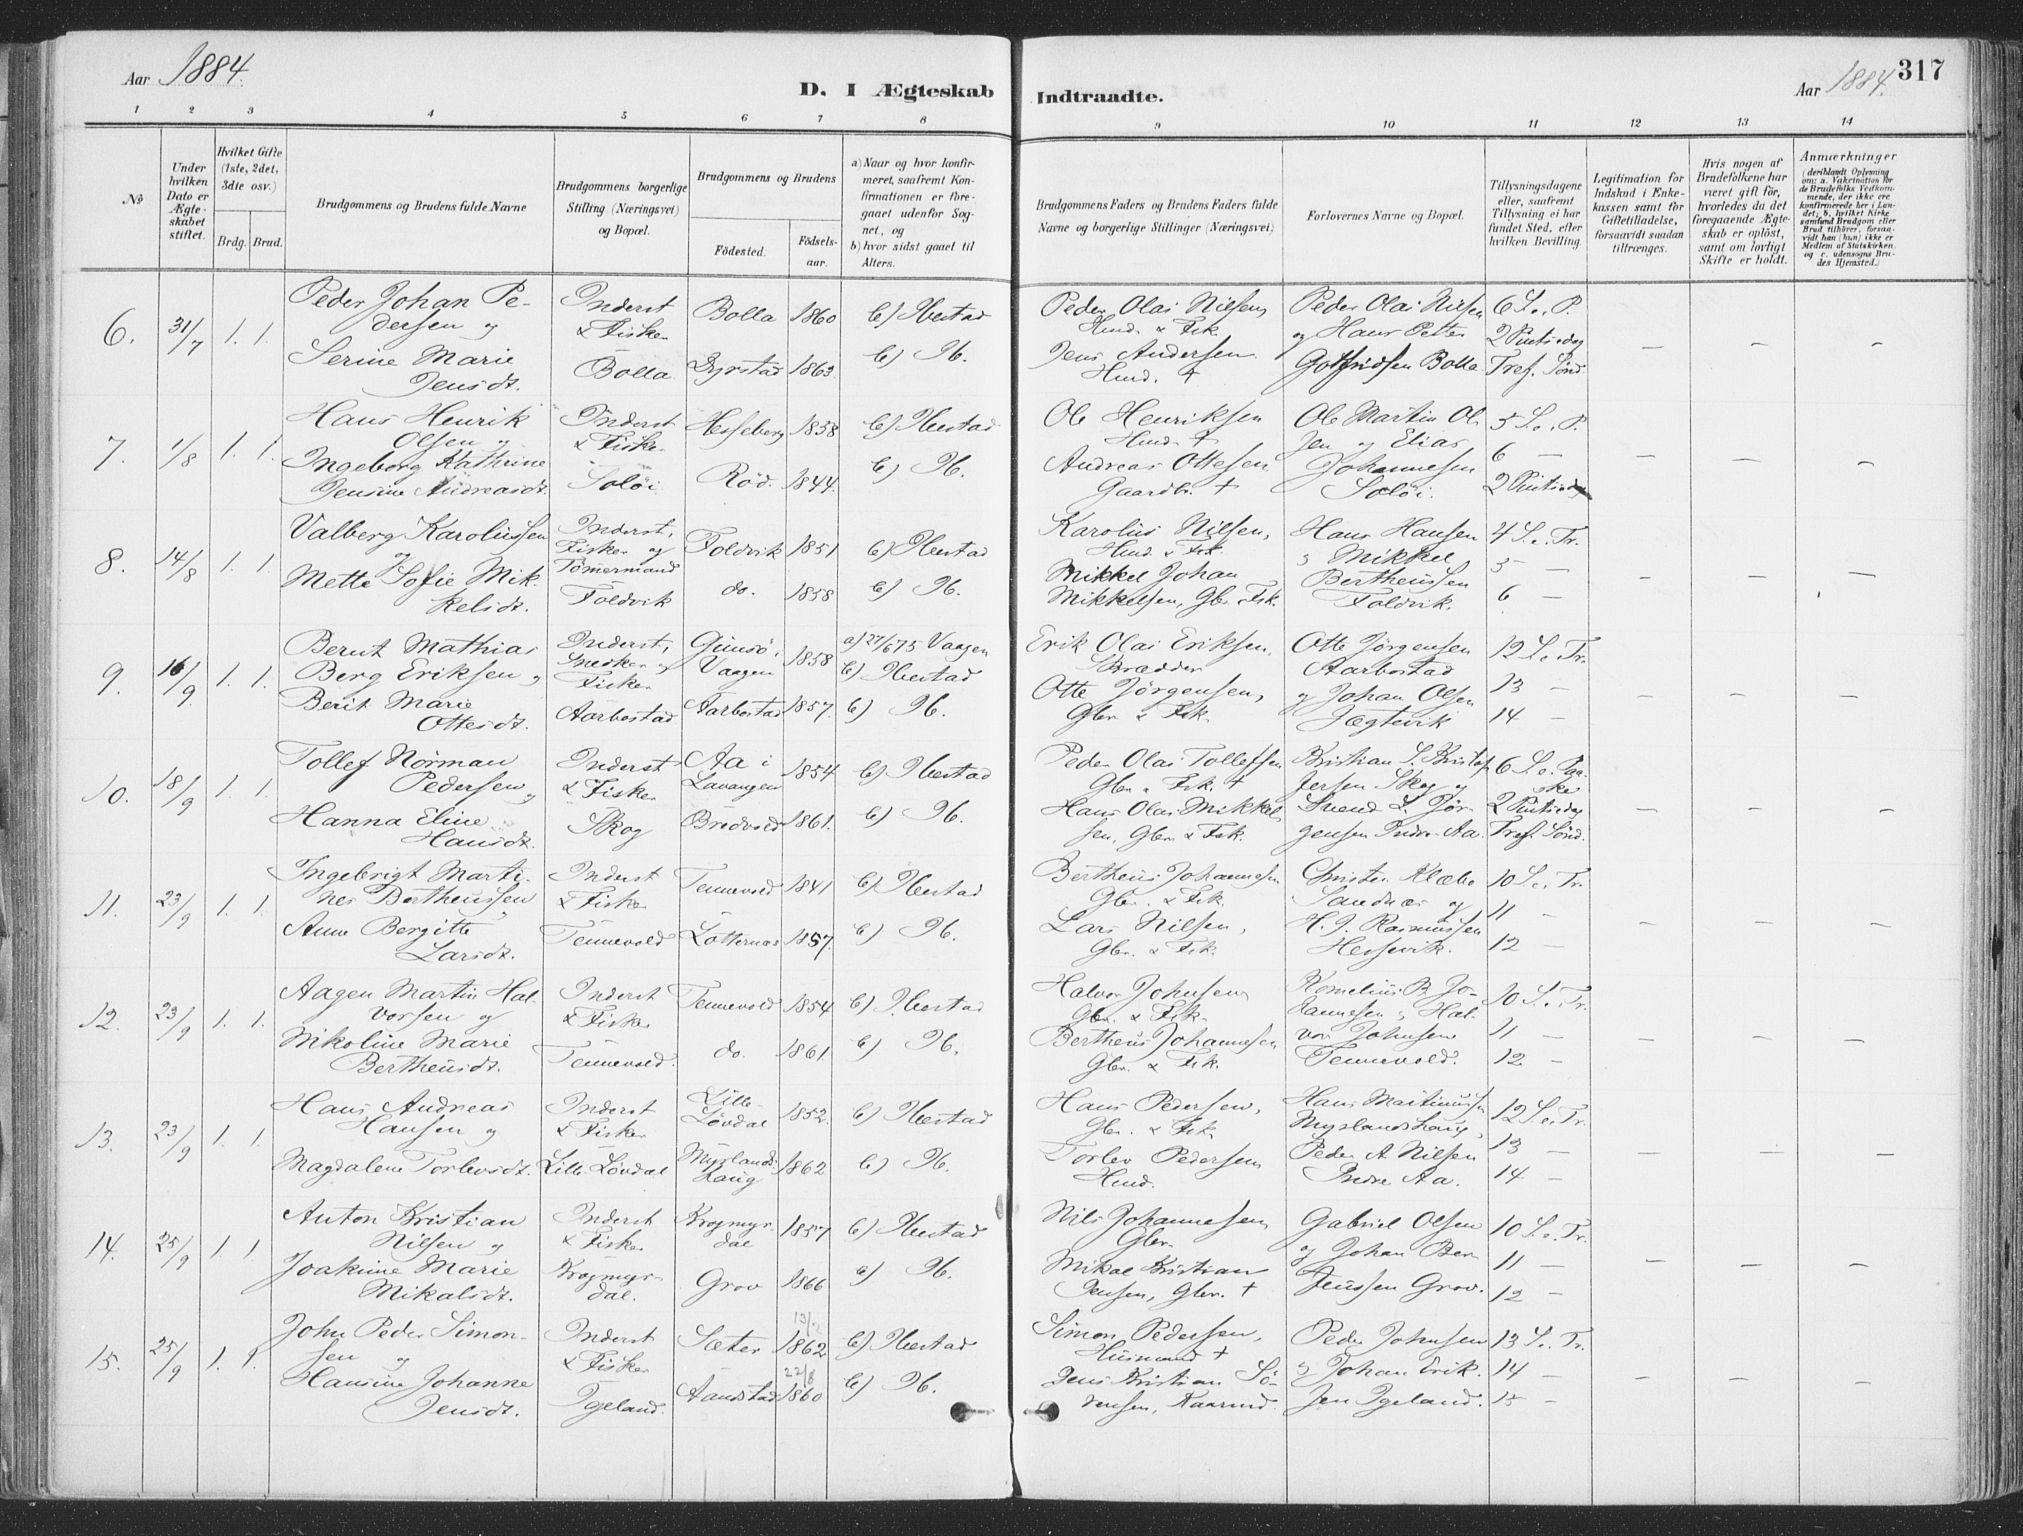 Aar 1884.
D. I Ægteskab Indtraadte.
Aar 1884. 317
1 2 3 4 5 6 7 8 9 10 11 12 13 14
No
Under hvilken Dato er Ægteskabet stiftet.
Hvilket Gifte (1ste, 2det, 3die osv.)
Brdg. Brud.
Brudgommens og Brudens fulde Navne
Brudgommens borgerlige Stilling (Næringsvei) og Bopæl.
Brudgommens og Brudens
Fødested. Fødselsaar.
a) Naar og hvor konfirmeret, saafremt Konfirmationen er foregaaet udenfor Sognet, og
b) hvor sidst gaaet til Alters.
Brudgommens Faders og Brudens Faders fulde Navne og borgerlige Stillinger (Næringsvei)
Forlovernes Navne og Bopæl.
Tillysningsdagene eller, saafremt Tillysning ei har fundet Sted, efter hvilken Bevilling.
Legitimation for Indskud i Enkekassen samt for Giftetilladelse, forsaavidt saadan tiltrænges.
Hvis nogen af Brudefolkene har været gift før, hvorledes da det foregaaende Ægteskab er opløst, samt om lovligt Skifte er holdt.
Anmærkninger
(deriblandt Oplysning om: a. Vakcination for de Brudefolks Vedkommende, der ikke ere konfirmerede her i Landet; b. hvilket Kirkesamfund Brudgom eller Brud tilhører, forsaavidt han (hun) ikke er Medlem af Statskirken, og c. udensogns Brudes Hjemsted.)
6. 31/7 1. 1. Peder Johan Pedersen og Inderst & Fisker Bolla 1860 b) Ibestad
Serine Marie Jensdt. Bolla Dyrstad 1863 b) Ib.
Peder Olai Nilsen Husm. & Fisk. Peder Olai Nilsen og Hans Petter Gotfridsen Bolla 6 S. e. P. 2 Pintsedag Tref. Sønd. — — —
Jens Andersen Husm. †
7. 1/8 1. 1. Hans Henrik Olsen og Inderst & Fisker Hesseberg 1858 b) Ibestad
Ingeborg Kathrine Jensine Andreasdt. Soløi Rød. 1844. b) Ib.
Ole Henriksen Husm. † Ole Martin Olsen og Elias Johannesen Soløi. 5 S. e. P. 6 — 2 Pintsedag — — —
Andreas Ottesen Gaardbr. †
8. 14/8 1. 1. Valberg Karolussen og Inderst, Fisker og Tømermand Foldvik 1851 b) Ibestad
Mette Sofie Mikkelsdt. Foldvik do. 1858 b) Ib.
Karolus Nilsen, Husm. & Fisk. Hans Hansen & Mikkel Bertheussen Foldvik. 4 S. e. Tr. 5 — 6 — — — —
Mikkel Johan Mikkelsen, Gbr. & Fisk.
9. 16/9 1. 1. Bernt Mathias Berg Eriksen og Inderst, Snedker og Fisker Gimsø i Vaagen 1858 a) 27/6 75 Vaagen b) Ibestad
Berit Marie Ottesdt. Aarbostad Aarbostad 1857. b) Ib.
Erik Olai Eriksen, Skrædder Otte Jørgensen Aarbostad og Johan Olsen Jægtvik 12 S. e. Tr. 13 — 14 — — — —
Otte Jørgensen, Gbr. & Fisk.
10. 18/9 1. 1. Tollef Nørman Pedersen og Inderst & Fisker Aa i Lavangen 1854 b) Ibestad
Hanna Eline Hansdt. Skog Brødvold 1861. b) Ib.
Peder Olai Tollefsen Gbr. & Fisk. † Kristian S. Kristofersen Skog og Svend L. Jørgensen Indre-Aa. 6 S. e. Paaske 2 Pintsedag Tref. Sønd. — — —
Hans Olai Mikkelsen, Gbr. & Fisk.
11. 23/9 1. 1. Ingebrigt Martines Bertheussen Inderst & Fisker Tennevold 1841 b) Ibestad
Anne Bergitte Larsdt. Tennevold Løtternes 1857. b) Ib.
Bertheus Johannesen Gbr. & Fisk. Christen Klæbo Sandnæs og H. J. Rasmussen Hessevik. 10 S. e. Tr. 11 — 12 — — — —
Lars Nilsen, Gbr. & Fisk.
12. 23/9 1. 1. Aagen Martin Halvorsen og Inderst & Fisker Tennevold 1854 b) Ibestad
Nikoline Marie Bertheusdt. Tennevold. do. 1861. b) Ib.
Halvor Johnsen Gbr. & Fisk. Kornelius B. Johannesen & Halvor Johnsen Tennevold. 10 S. e. Tr. 11 — 12 — — — —
Bertheus Johannesen Gbr. & Fisk.
13. 23/9 1. 1. Hans Andreas Hansen og Inderst & Fisker Lille-Løvdal 1852. b) Ibestad
Magdalene Torlevsdt. Lille-Løvdal Myrlandshaug 1862 b) Ib.
Hans Pedersen, Gbr. & Fisk. Hans Martinussen Myrlandshaug, Peder A. Nilsen Indre Aa. 12 S. e. Tr. 13 — 14 — — — —
Torlev Pedersen Husm.
14. 25/9 1. 1. Anton Kristian Nilsen og Inderst & Fisker Krogmyrdal 1857 b) Ibestad
Joakime Marie Mikalsdt. Krogmyrdal. Grov 1866 a) Ib.
Nils Johannesen Gbr. Gabriel Olsen og Johan Berntssen Grov. 10 S. e. Tr. 11 — 12 — — — —
Mikal Kristian Jensen, Gbr. †
15. 25/9 1. 1. John Peder Simonsen og Inderst & Fisker Sæter 1862 b) Ibestad
Hansine Johanne Jensdt. Tgeland. Aandstad 22/8 1860 b) Ib.
Simon Pedersen, Husmand † Peder Johnsen & Johan Eriksen Tgeland. 13 S. e. Tr. 14 — 15 — — — —
Jens Kristian Sørensen, Kaarmd.